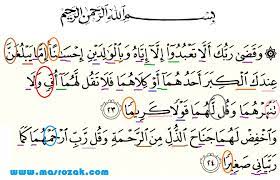 بِسْمِ اللَّهِ الرَّحْمَنِ الرَّحِيمِ
۞ وَقَضَىٰ رَبُّكَ أَلَّا تَعْبُدُوٓا۟ إِلَّآ إِيَّاهُ وَبِٱلْوَٰلِدَيْنِ إِحْسَٰنًا ۚ إِمَّا يَبْلُغَنَّ
عِندَكَ ٱلْكِبَرَ أَحَدُهُمَآ أَوْ كِلَاهُمَا فَلَا تَقُل لَّهُمَآ أُفٍّ وَلَا
تَنْهَرْهُمَا وَقُل لَّهُمَا قَوْلًا كَرِيمًا ٢٣
وَٱخْفِضْ لَهُمَا جَنَاحَ ٱلذُّلِّ مِنَ ٱلرَّحْمَةِ وَقُل رَّبِّ ٱرْحَمْهُمَا كَمَا
رَبَّيَانِى صَغِيرًا ٢٤
www.masrozak.com